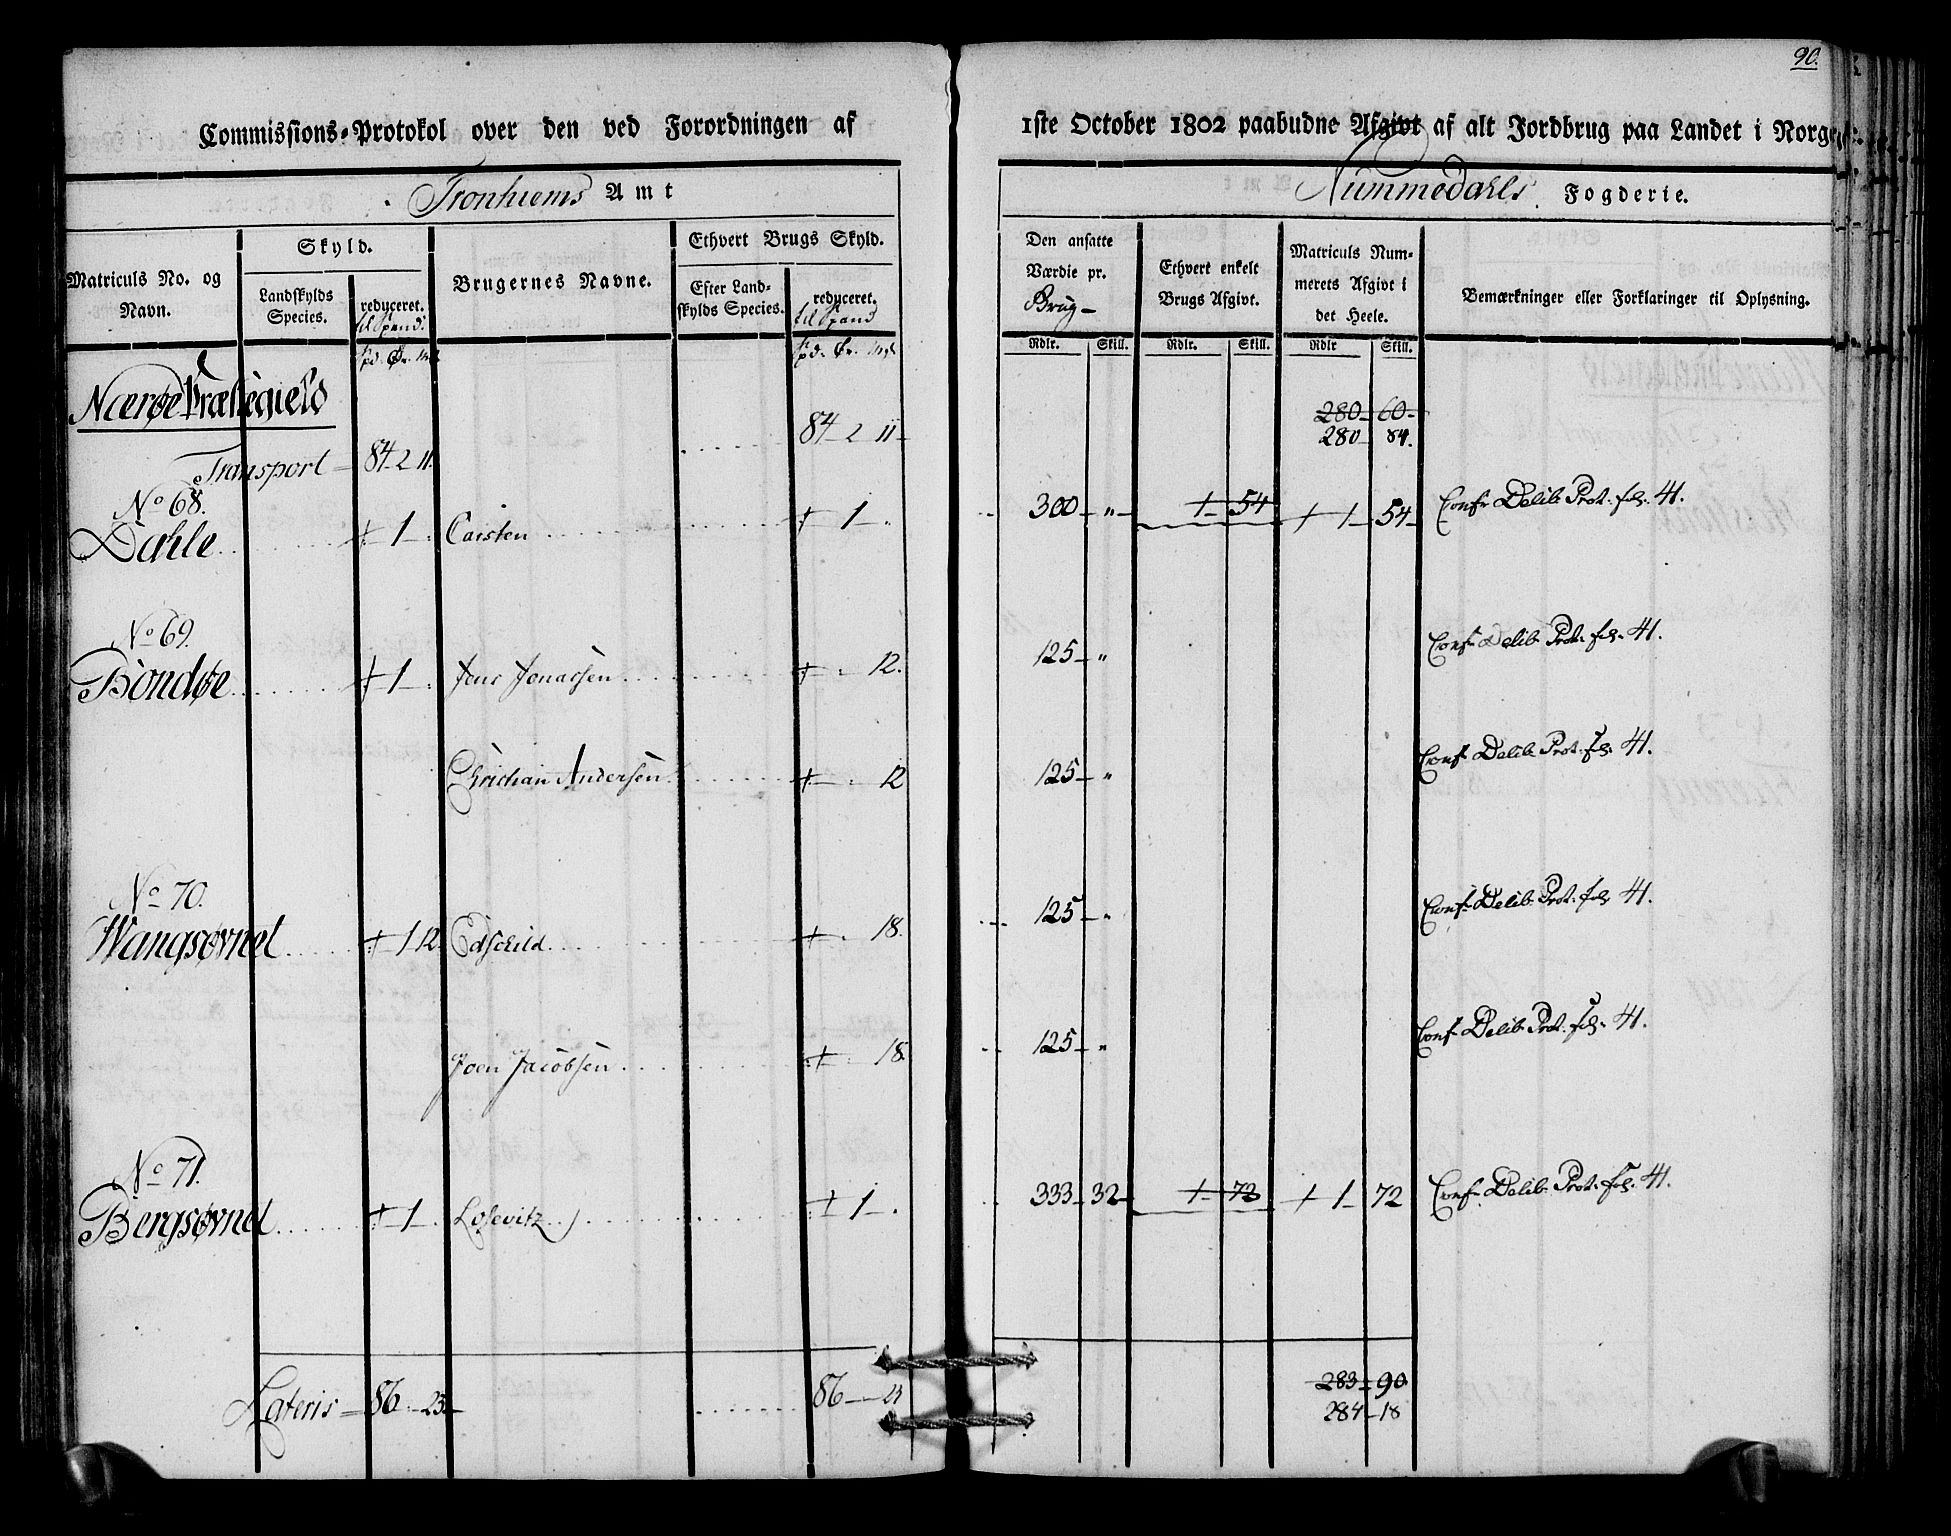 90.
Commissions-Protokol over den ved Forordningen af 1ste October 1802 paabudne Afgivt af alt Jordbrug paa Landet i Norge
Tronhiems Amt
Nummedahls Fogderie.
Matriculs No. og Navn.
Skyld.
Landskylds Species.
reduceret.
til Spand.
Brugernes Navne.
Ethvert Brugs Skyld.
Efter Landskylds Species.
reduceret.
til Spand
Den ansatte Værdie pr.
Brug
Ethvert enkelt Brugs Afgivt.
Matriculs Nummerets Afgivt i det Heele.
Bemærkninger eller Forklaringer til Oplysning.
Rdlr. Skill. Rdlr. Skill. Rdlr Skill.
Nærøe Præstegield
280 60
84 2 11 280 84.
Transport 84 2 11.
No 68.
Dahle 1 Carsten 1 300 " 1 54 1 54 Conf. Delib. Prot. fol. 41.
No 69.
Bondøe 1 Jens Jonassen 12. 125 " Conf. Delib. Prot. fol. 41.
Christian Andersen 12 125 " Conf. Delib. Prot. fol. 41.
No 70.
Wangsøvnet 1 12 Edschild 18. 125 " Conf. Delib. Prot. fol. 41.
Joen Jacobsen 18. 125 " Conf. Delib. Prot. fol. 41.
No 71.
Bergsøvnet 1 1 333 32 1 73 1 72 Conf. Delib. Prot. fol. 41.
283 90
Lateris 86 23 86 23 284 18